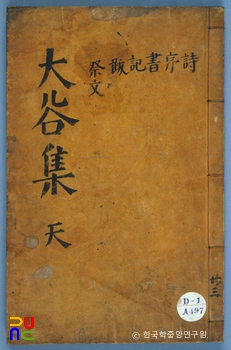 大谷集 天
詩序書記跋
祭文
共三
D-1
A497
ⓒ한국학중앙연구원